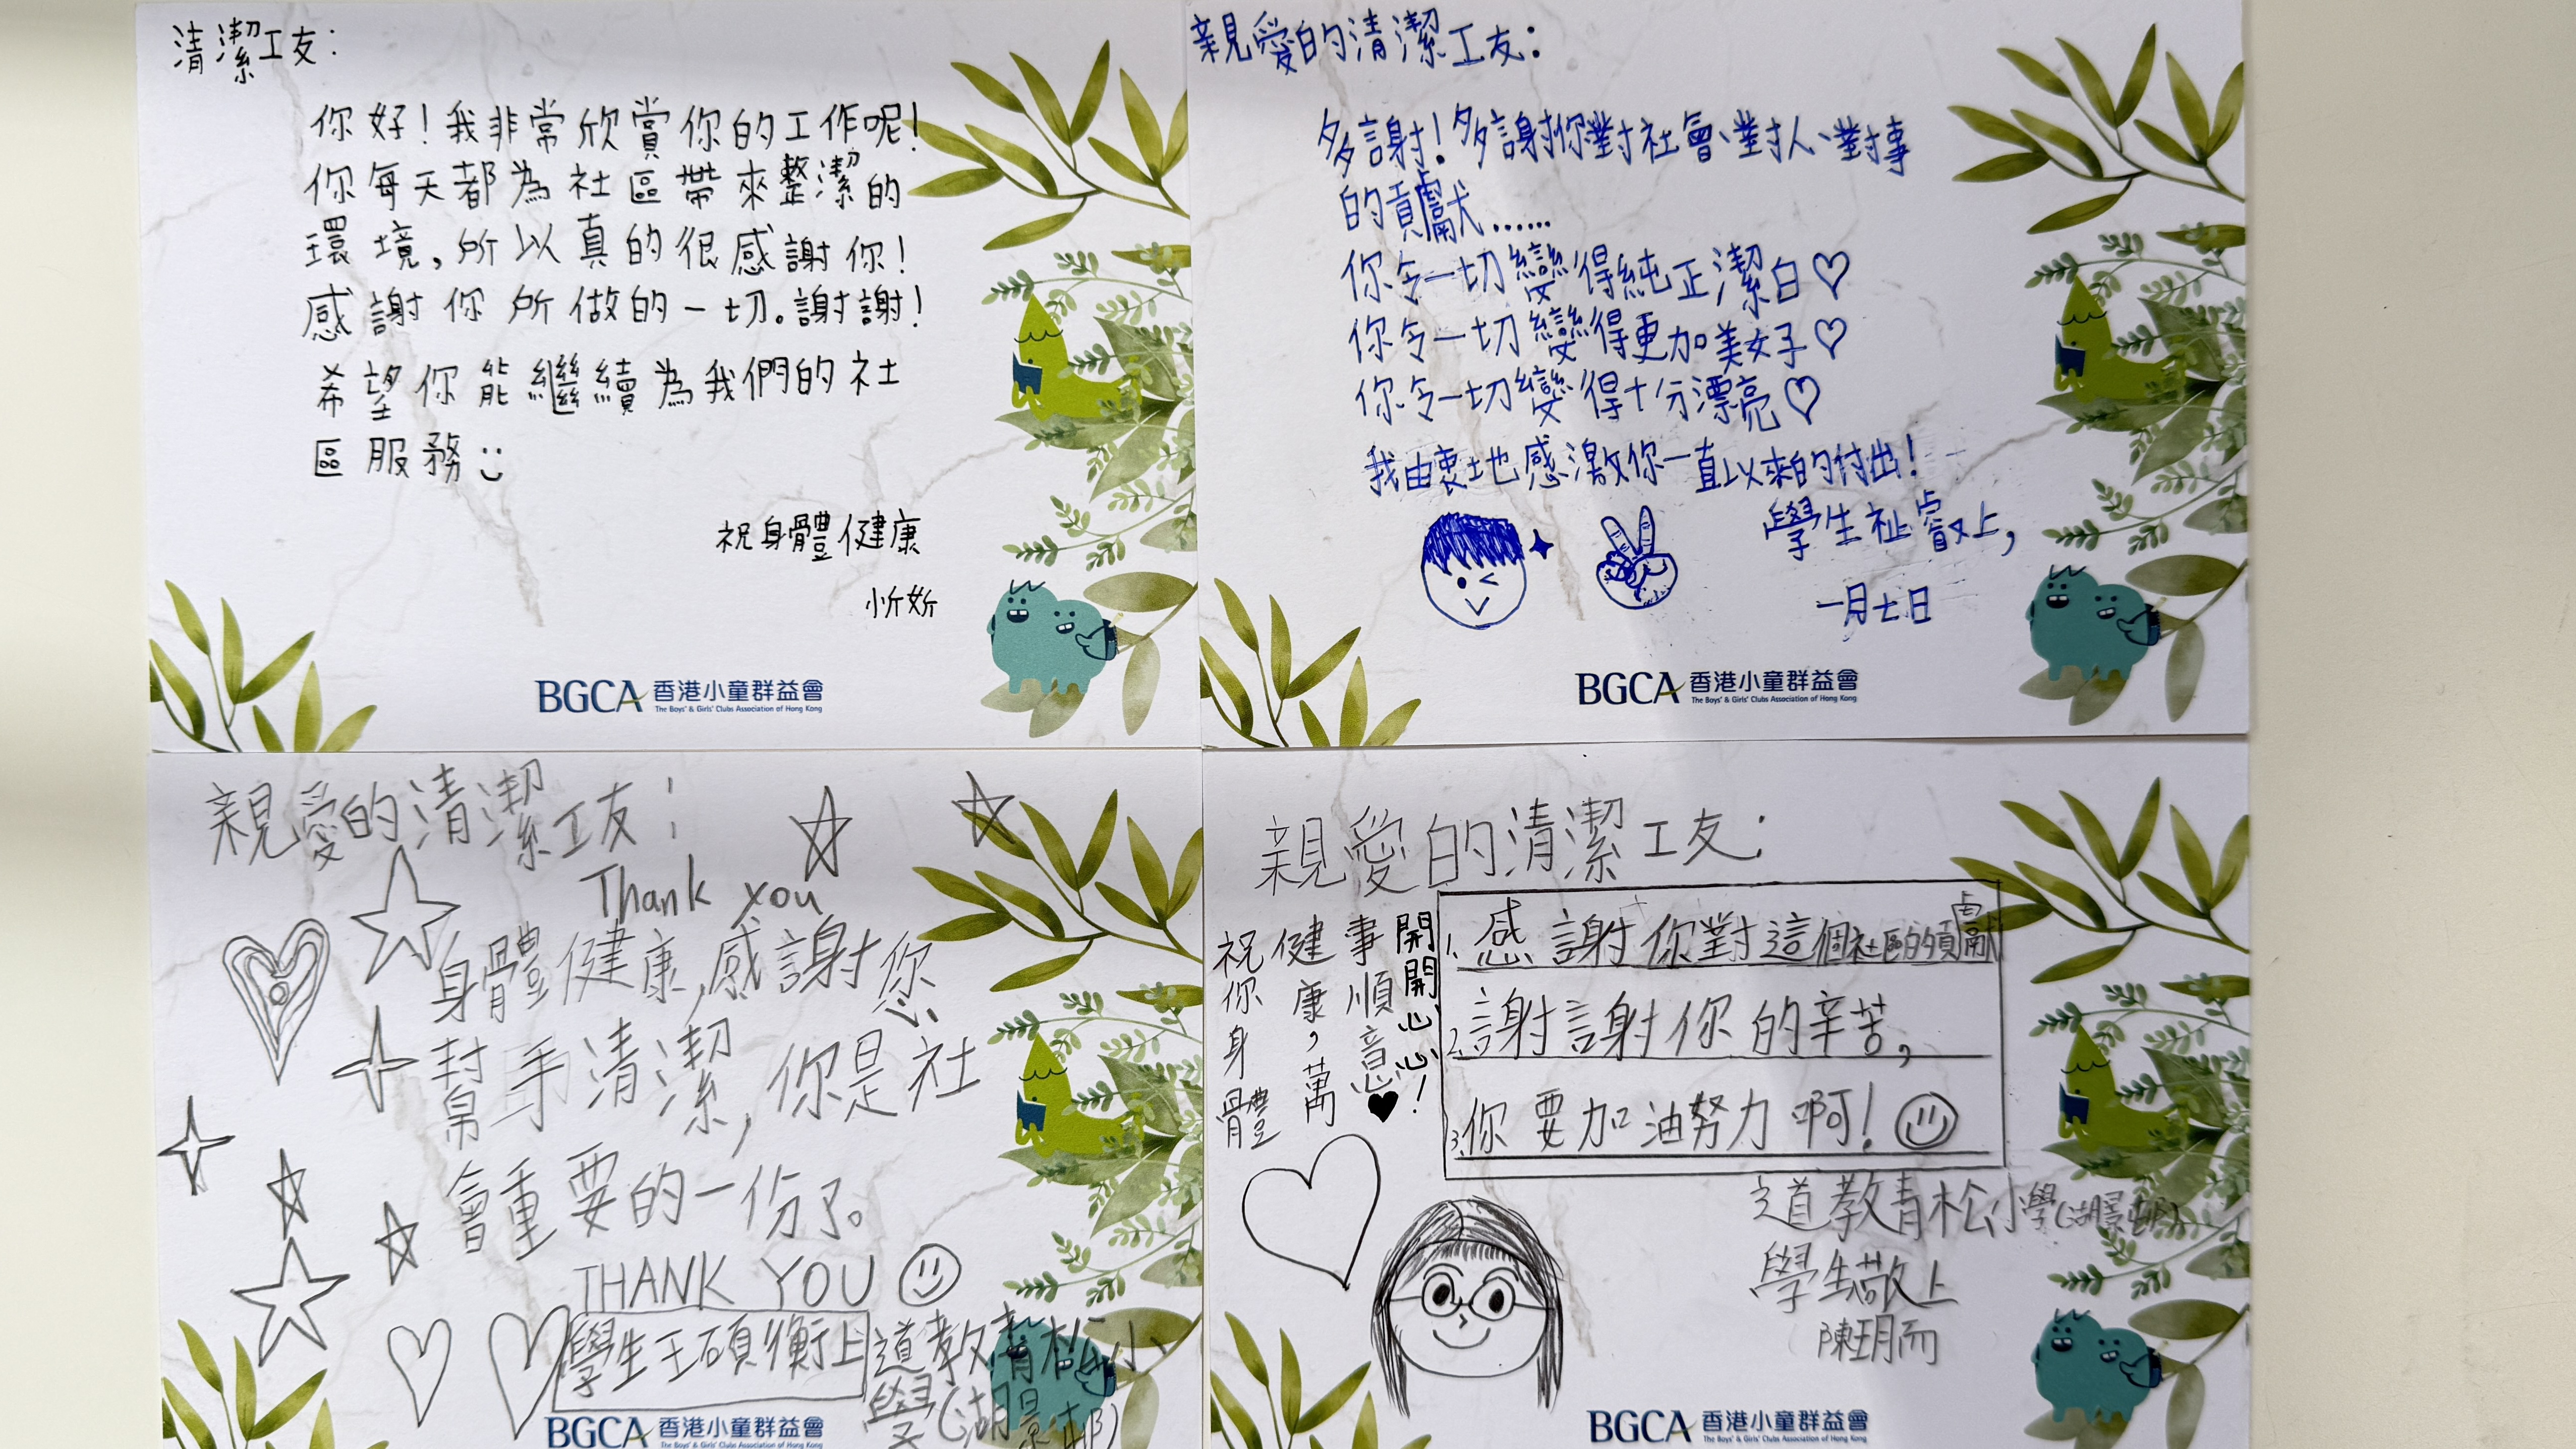 清潔工友：
你好！我非常欣賞你的工作呢！
你每天都為社區帶來整潔的
環境，所以真的很感謝你！
感謝你所做的一切。謝謝！
希望你能繼續為我們的社
區服務
祝身體健康
忻妡
BGCA 香港小童群益會
The Boys' & Girls' Clubs Association of Hong Kong
親愛的清潔工友：
多謝！多謝你對社會、對人、對事
的貢獻……
你令一切變得純正潔白♡
你令一切變得更加美好♡
你令一切變得十分漂亮♡
我由衷地感激你一直以來的付出！
學生祉睿上，
一月七日
BGCA 香港小童群益會
The Boys' & Girls' Clubs Association of Hong Kong
親愛的清潔工友：
Thank you
身體健康，感謝您
幫手清潔，你是社
會重要的一份了。
THANK YOU
學生王碩衡上 道教青松小
學（湖景邨）
BGCA 香港小童群益會
The Boys' & Girls' Clubs Association of Hong Kong
親愛的清潔工友：
祝你身體
健康，萬
事順意♥
開開心心！
1. 感謝你對這個社區的貢獻
2. 謝謝你的辛苦，
3. 你要加油努力啊！
道教青松小學（湖景邨）
學生敬上
陳玥而
BGCA 香港小童群益會
The Boys' & Girls' Clubs Association of Hong Kong